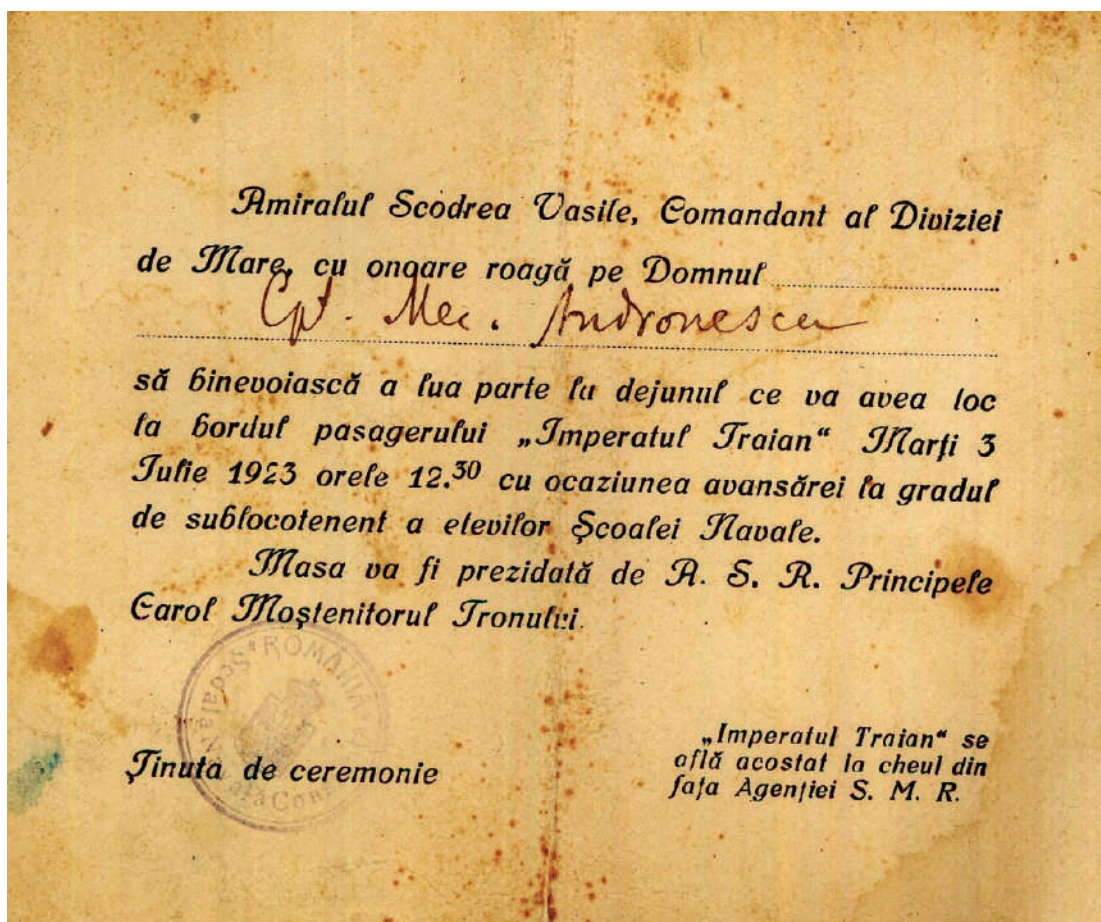 Amiralul Scodrea Vasile, Comandant al Diviziei
de Mare, cu onoare roagă pe Domnul
Cpt. Mec. Andronescu
să binevoiască a lua parte la dejunul ce va avea loc
la bordul pasagerului „Imperatul Traian“ Marți 3
Iulie 1923 orele 12.30 cu ocaziunea avansărei la gradul
de sublocotenent a elevilor Școalei Navale.
Masa va fi prezidată de A. S. R. Principele
Carol Moștenitorul Tronului.
ROMANIA
Școala
Ținuta de ceremonie
„Imperatul Traian“ se
află acostat la cheul din
fața Agenției S. M. R.